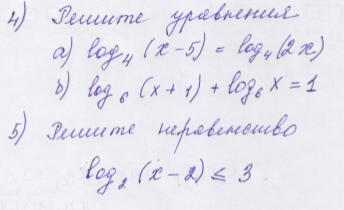 4) Решите уравнения
а) log₄ (x-5) = log₄(2x)
б) log₆ (x+1) + log₆ x = 1
5) Решите неравенство
log₂ (x-2) ≤ 3